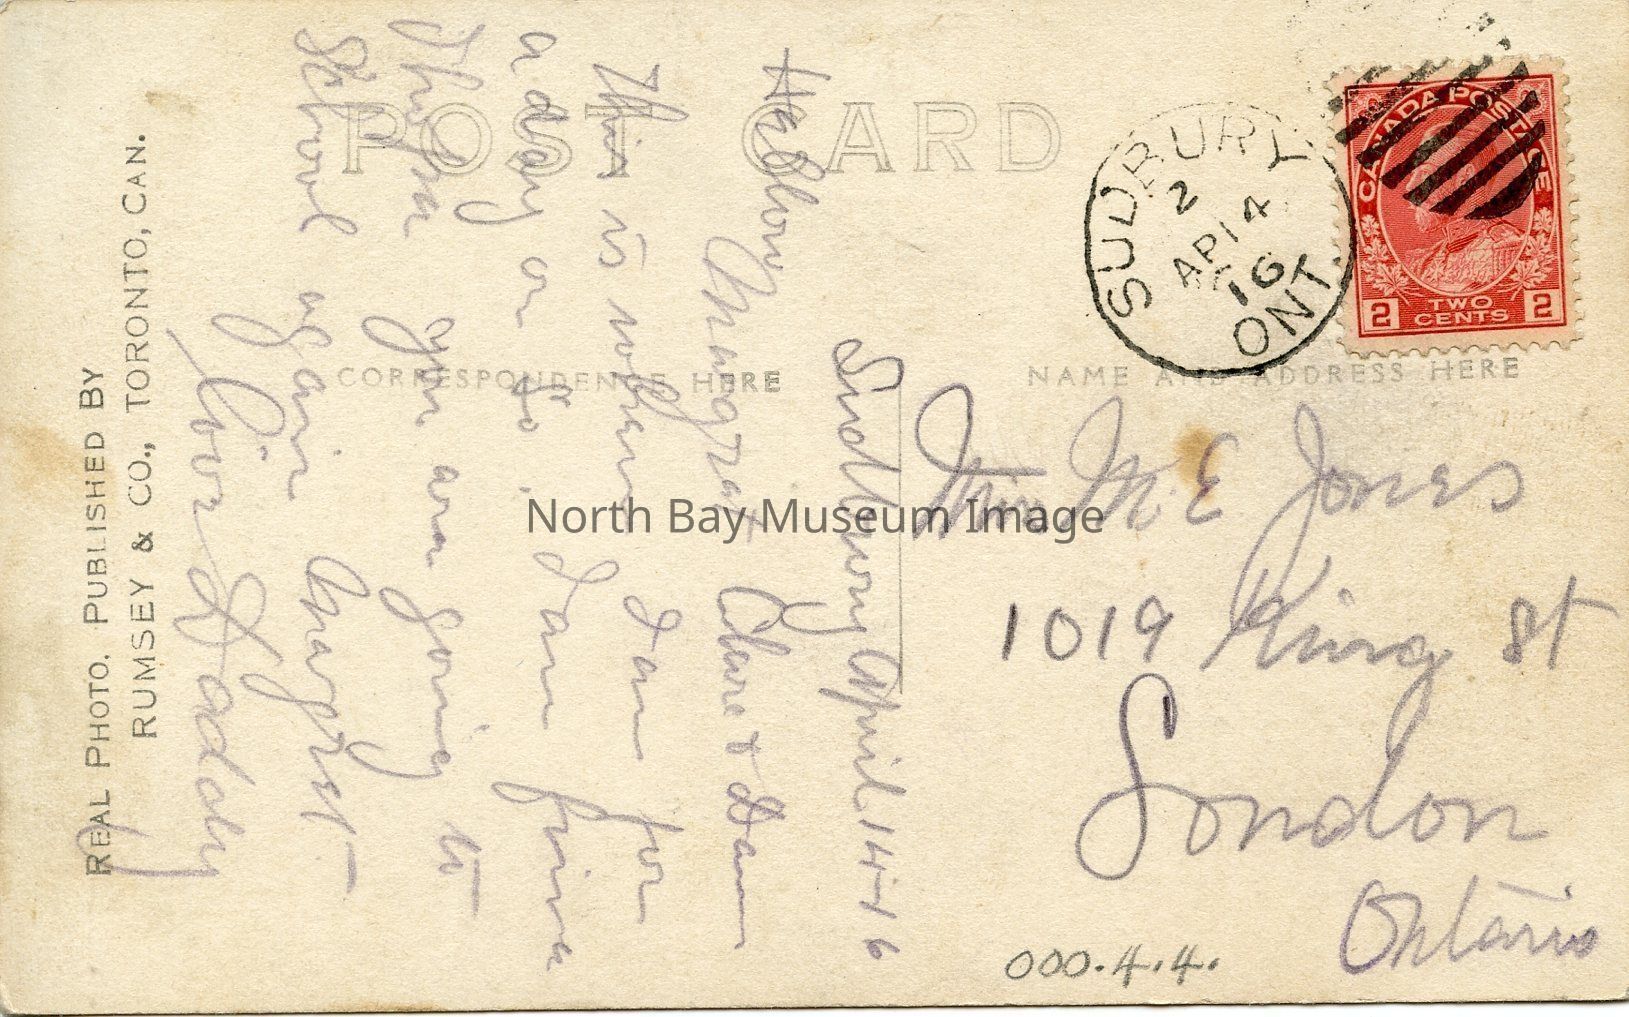 POST CARD
CORRESPONDENCE HERE
NAME AND ADDRESS HERE
REAL PHOTO. PUBLISHED BY
RUMSEY & CO., TORONTO, CAN.
SUDBURY
2
AP 14
16
ONT.
CANADA POSTAGE
2 TWO CENTS 2
Sudbury April 14-16
Hellow Margret Clare & Dan
This is where I am for
a day or so. I am fine
you are going to
School again Margret
Daddy
M. E Jones
1019 King St
London
Ontario
000.4.4.
North Bay Museum Image